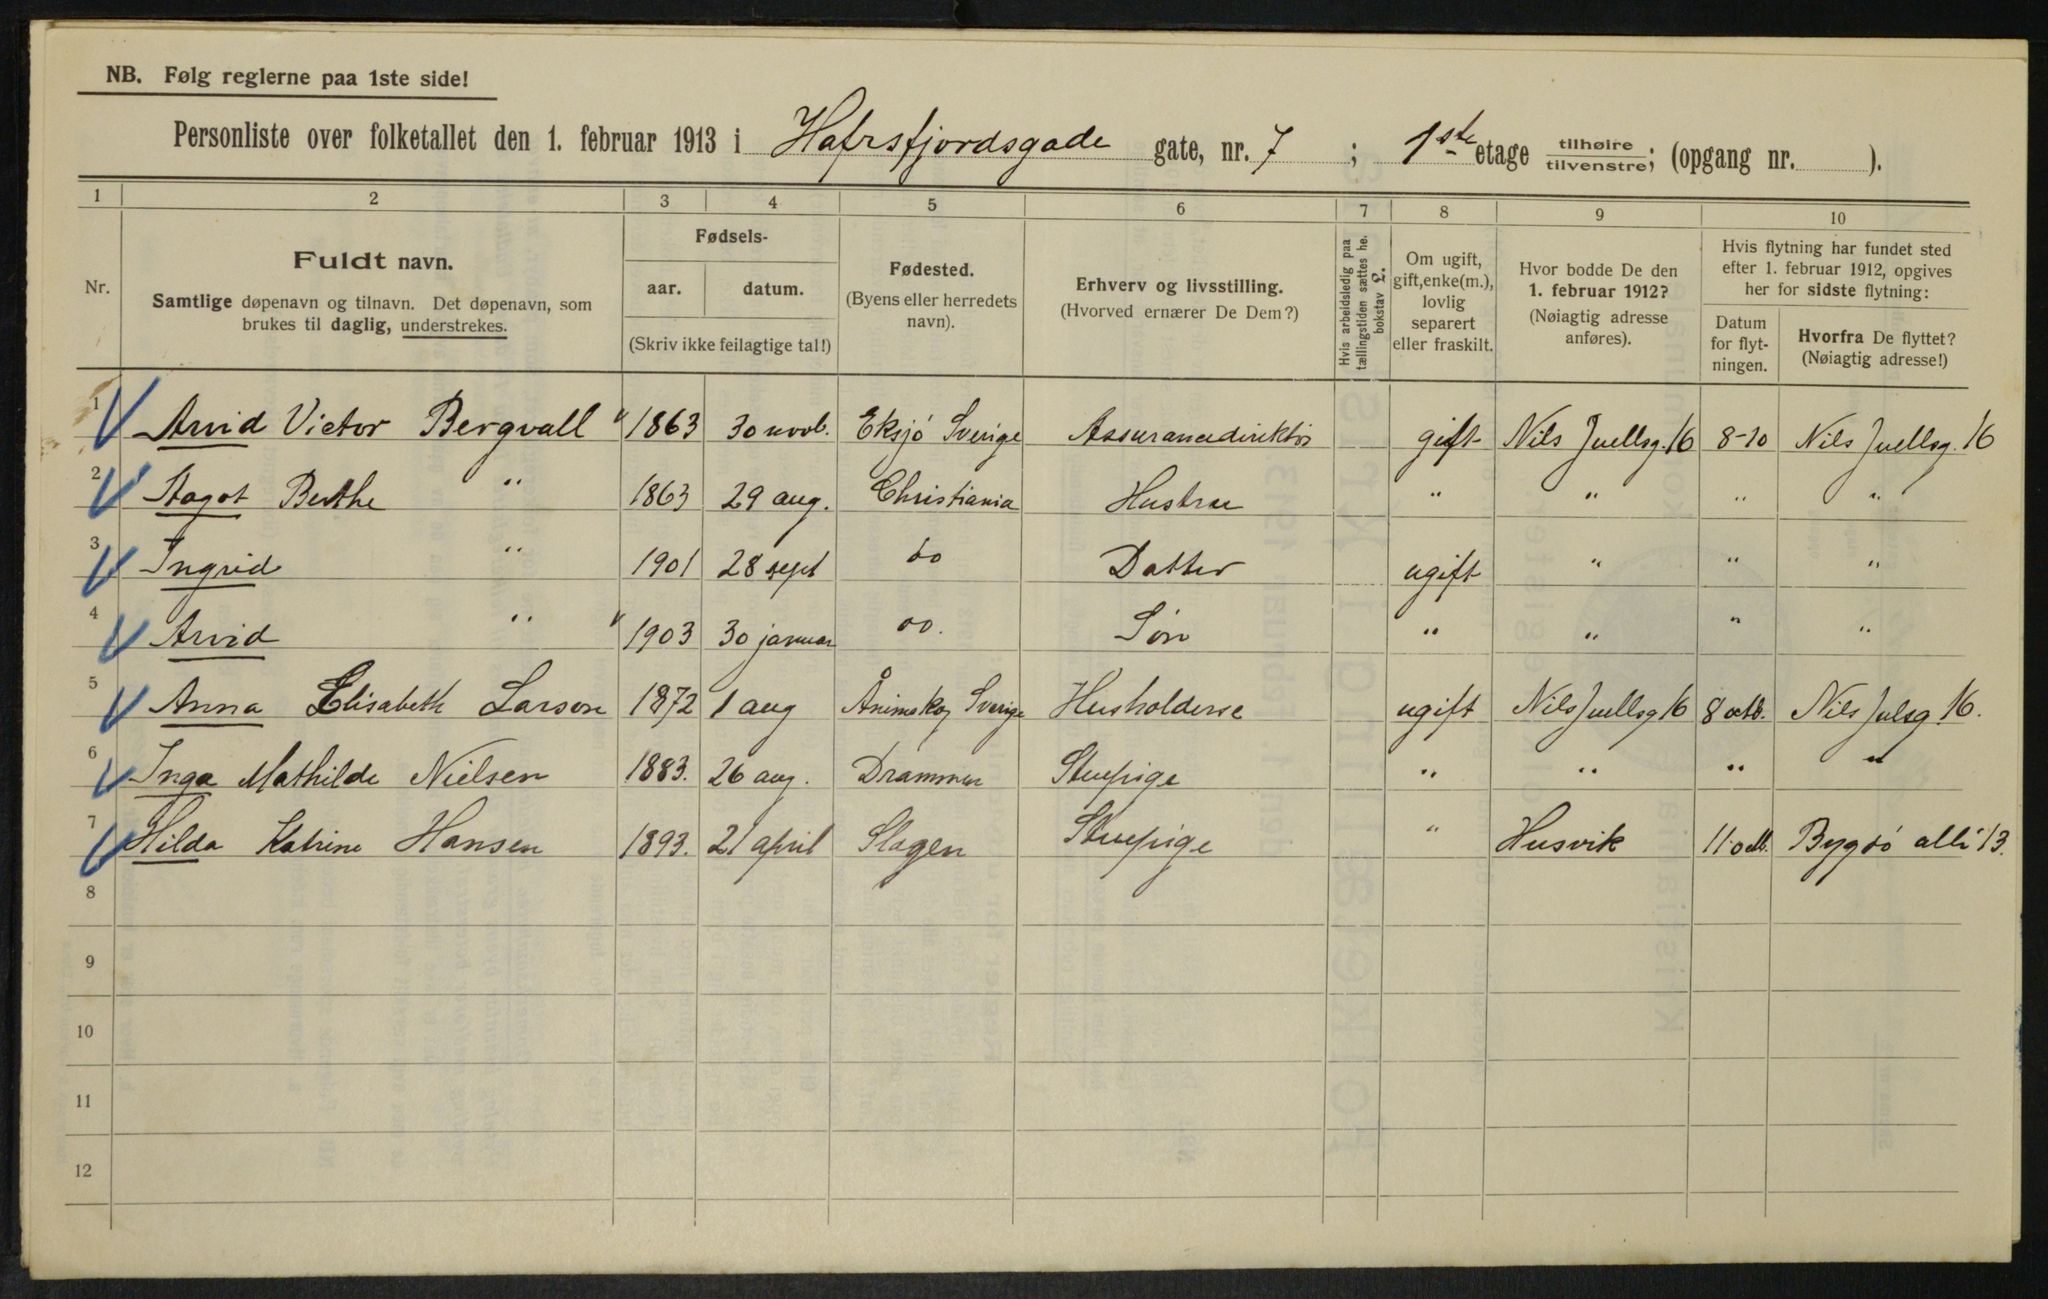 NB. Følg reglerne paa 1ste side!
Personliste over folketallet den 1. februar 1913 i Hafrsfjordsgade gate, nr. 7 ; 1ste etage tilhøire tilvenstre; (opgang nr. ).
1 2 3 4 5 6 7 8 9 10
Nr.
Fuldt navn.
Samtlige døpenavn og tilnavn. Det døpenavn, som
brukes til daglig, understrekes.
Fødsels-
aar. datum.
(Skriv ikke feilagtige tal!)
Fødested.
(Byens eller herredets
navn).
Erhverv og livsstilling.
(Hvorved ernærer De Dem?)
Hvis arbeidsledig paa
tællingstiden sættes he.
bokstav L.
Om ugift,
gift, enke(m.),
lovlig
separert
eller fraskilt.
Hvor bodde De den
1. februar 1912?
(Nøiagtig adresse
anføres).
Hvis flytning har fundet sted
efter 1. februar 1912, opgives
her for sidste flytning:
Datum
for flyt-
ningen.
Hvorfra De flyttet?
(Nøiagtig adresse!)
1 Arvid Victor Bergvall " 1863 30 novb. Eksjö Sverige Assurancedirektör gift Nils Juellsg. 16 8-10 Nils Juellsg. 16
2 Aagot Berthe " 1863 29 aug. Christiania Hustru " " " "
3 Ingrid " 1901 28 sept do Datter ugift " " "
4 Arvid " " 1903 30 januar do. Søn " " " "
5 Anna Elisabeth Larson 1872 1 aug Ånimskog Sverige Husholderse ugift Nils Juellsg 16 8 octb. Nils Julsg. 16.
6 Inga Mathilde Nielsen 1883. 26 aug. Drammen Stuepige " " " "
7 Hilda Katrine Hansen 1893. 21 april Slagen Stuepige " Husvik 11 octb. Bygdö allé 13.
8
9
10
11
12